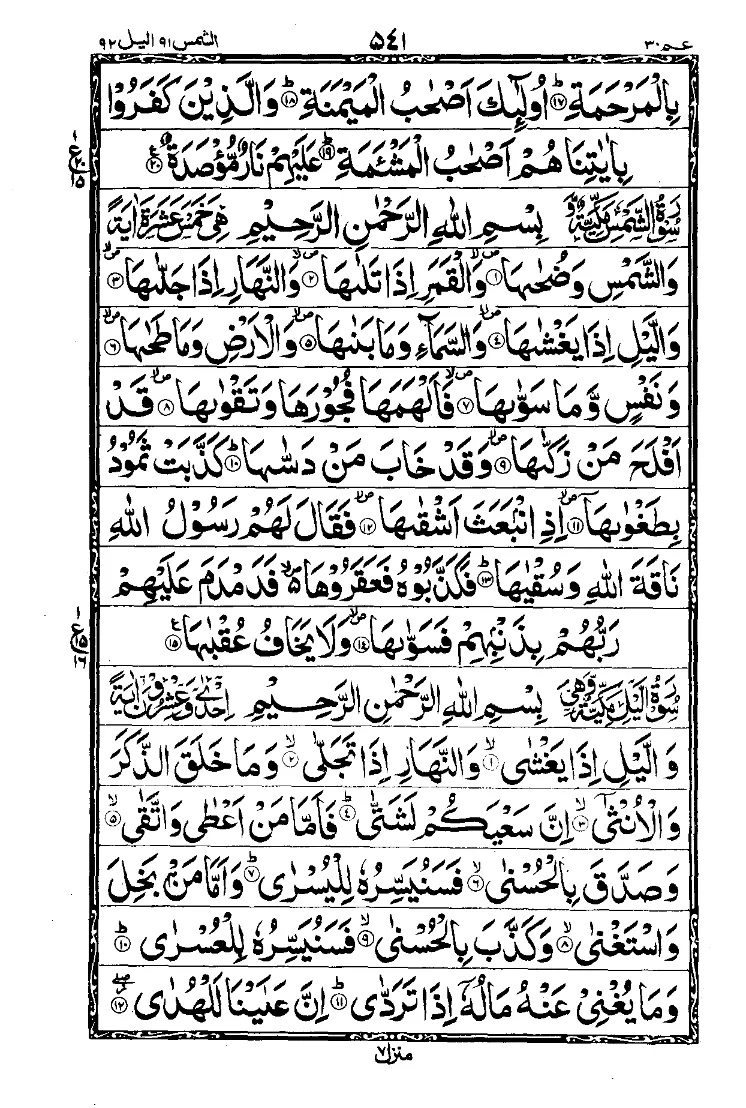 عـم ٣٠ ٥٤١ الشمس ٩١ اليل ٩٢
بِالْمَرْحَمَةِ ؕ﴿۱۷﴾ اُولٰٓئِكَ اَصْحٰبُ الْمَيْمَنَةِ ؕ﴿۱۸﴾ وَالَّذِيْنَ كَفَرُوْا
بِاٰيٰتِنَا هُمْ اَصْحٰبُ الْمَشْـَٔمَةِ ؕ﴿۱۹﴾ عَلَيْهِمْ نَارٌ مُّؤْصَدَةٌ ﴿۲۰﴾
سُوْرَةُ الشَّمْسِ مَكِّيَّةٌ وَّ بِسْمِ اللهِ الرَّحْمٰنِ الرَّحِيْمِ هِيَ خَمْسَ عَشْرَةَ اٰيَةً
وَالشَّمْسِ وَضُحٰىهَا ﴿۱﴾ وَالْقَمَرِ اِذَا تَلٰىهَا ﴿۲﴾ وَالنَّهَارِ اِذَا جَلّٰىهَا ﴿۳﴾
وَالَّيْلِ اِذَا يَغْشٰىهَا ﴿۴﴾ وَالسَّمَآءِ وَمَا بَنٰىهَا ﴿۵﴾ وَالْاَرْضِ وَمَا طَحٰىهَا ﴿۶﴾
وَنَفْسٍ وَّمَا سَوّٰىهَا ﴿۷﴾ فَاَلْهَمَهَا فُجُوْرَهَا وَتَقْوٰىهَا ﴿۸﴾ قَدْ
اَفْلَحَ مَنْ زَكّٰىهَا ﴿۹﴾ وَقَدْ خَابَ مَنْ دَسّٰىهَا ؕ﴿۱۰﴾ كَذَّبَتْ ثَمُوْدُ
بِطَغْوٰىهَآ ﴿۱۱﴾ اِذِ انْۢبَعَثَ اَشْقٰىهَا ﴿۱۲﴾ فَقَالَ لَهُمْ رَسُوْلُ اللهِ
نَاقَةَ اللهِ وَسُقْيٰهَا ؕ﴿۱۳﴾ فَكَذَّبُوْهُ فَعَقَرُوْهَا ۵ فَدَمْدَمَ عَلَيْهِمْ
رَبُّهُمْ بِذَنْۢبِهِمْ فَسَوّٰىهَا ﴿۱۴﴾ وَلَا يَخَافُ عُقْبٰهَا ﴿۱۵﴾
سُوْرَةُ الَّيْلِ مَكِّيَّةٌ وَّهِيَ بِسْمِ اللهِ الرَّحْمٰنِ الرَّحِيْمِ اِحْدٰى وَعِشْرُوْنَ اٰيَةً
وَالَّيْلِ اِذَا يَغْشٰى ۙ﴿۱﴾ وَالنَّهَارِ اِذَا تَجَلّٰى ۙ﴿۲﴾ وَمَا خَلَقَ الذَّكَرَ
وَالْاُنْثٰٓى ۙ﴿۳﴾ اِنَّ سَعْيَكُمْ لَشَتّٰى ؕ﴿۴﴾ فَاَمَّا مَنْ اَعْطٰى وَاتَّقٰى ۙ﴿۵﴾
وَصَدَّقَ بِالْحُسْنٰى ۙ﴿۶﴾ فَسَنُيَسِّرُهٗ لِلْيُسْرٰى ؕ﴿۷﴾ وَاَمَّا مَنْۢ بَخِلَ
وَاسْتَغْنٰى ۙ﴿۸﴾ وَكَذَّبَ بِالْحُسْنٰى ۙ﴿۹﴾ فَسَنُيَسِّرُهٗ لِلْعُسْرٰى ؕ﴿۱۰﴾
وَمَا يُغْنِىْ عَنْهُ مَالُهٗٓ اِذَا تَرَدّٰى ؕ﴿۱۱﴾ اِنَّ عَلَيْنَا لَلْهُدٰى ﴿۱۲﴾
منزل ٧